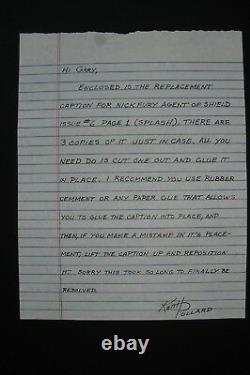 HI GARY,
ENCLOSED IS THE REPLACEMENT
CAPTION FOR NICK FURY AGENT OF SHIELD
ISSUE #6 PAGE 1 (SPLASH). THERE ARE
3 COPIES OF IT JUST IN CASE. ALL YOU
NEED DO IS CUT ONE OUT AND GLUE IT
IN PLACE. I RECOMMEND YOU USE RUBBER
CEMMENT OR ANY PAPER GLUE THAT ALLOWS
YOU TO GLUE THE CAPTION INTO PLACE, AND
THEN, IF YOU MAKE A MISTAKE IN IT'S PLACE-
MENT, LIFT THE CAPTION UP AND REPOSITION
IT. SORRY THIS TOOK SO LONG TO FINALLY BE
RESOLVED.
KEITH POLLARD
thumbimg.com